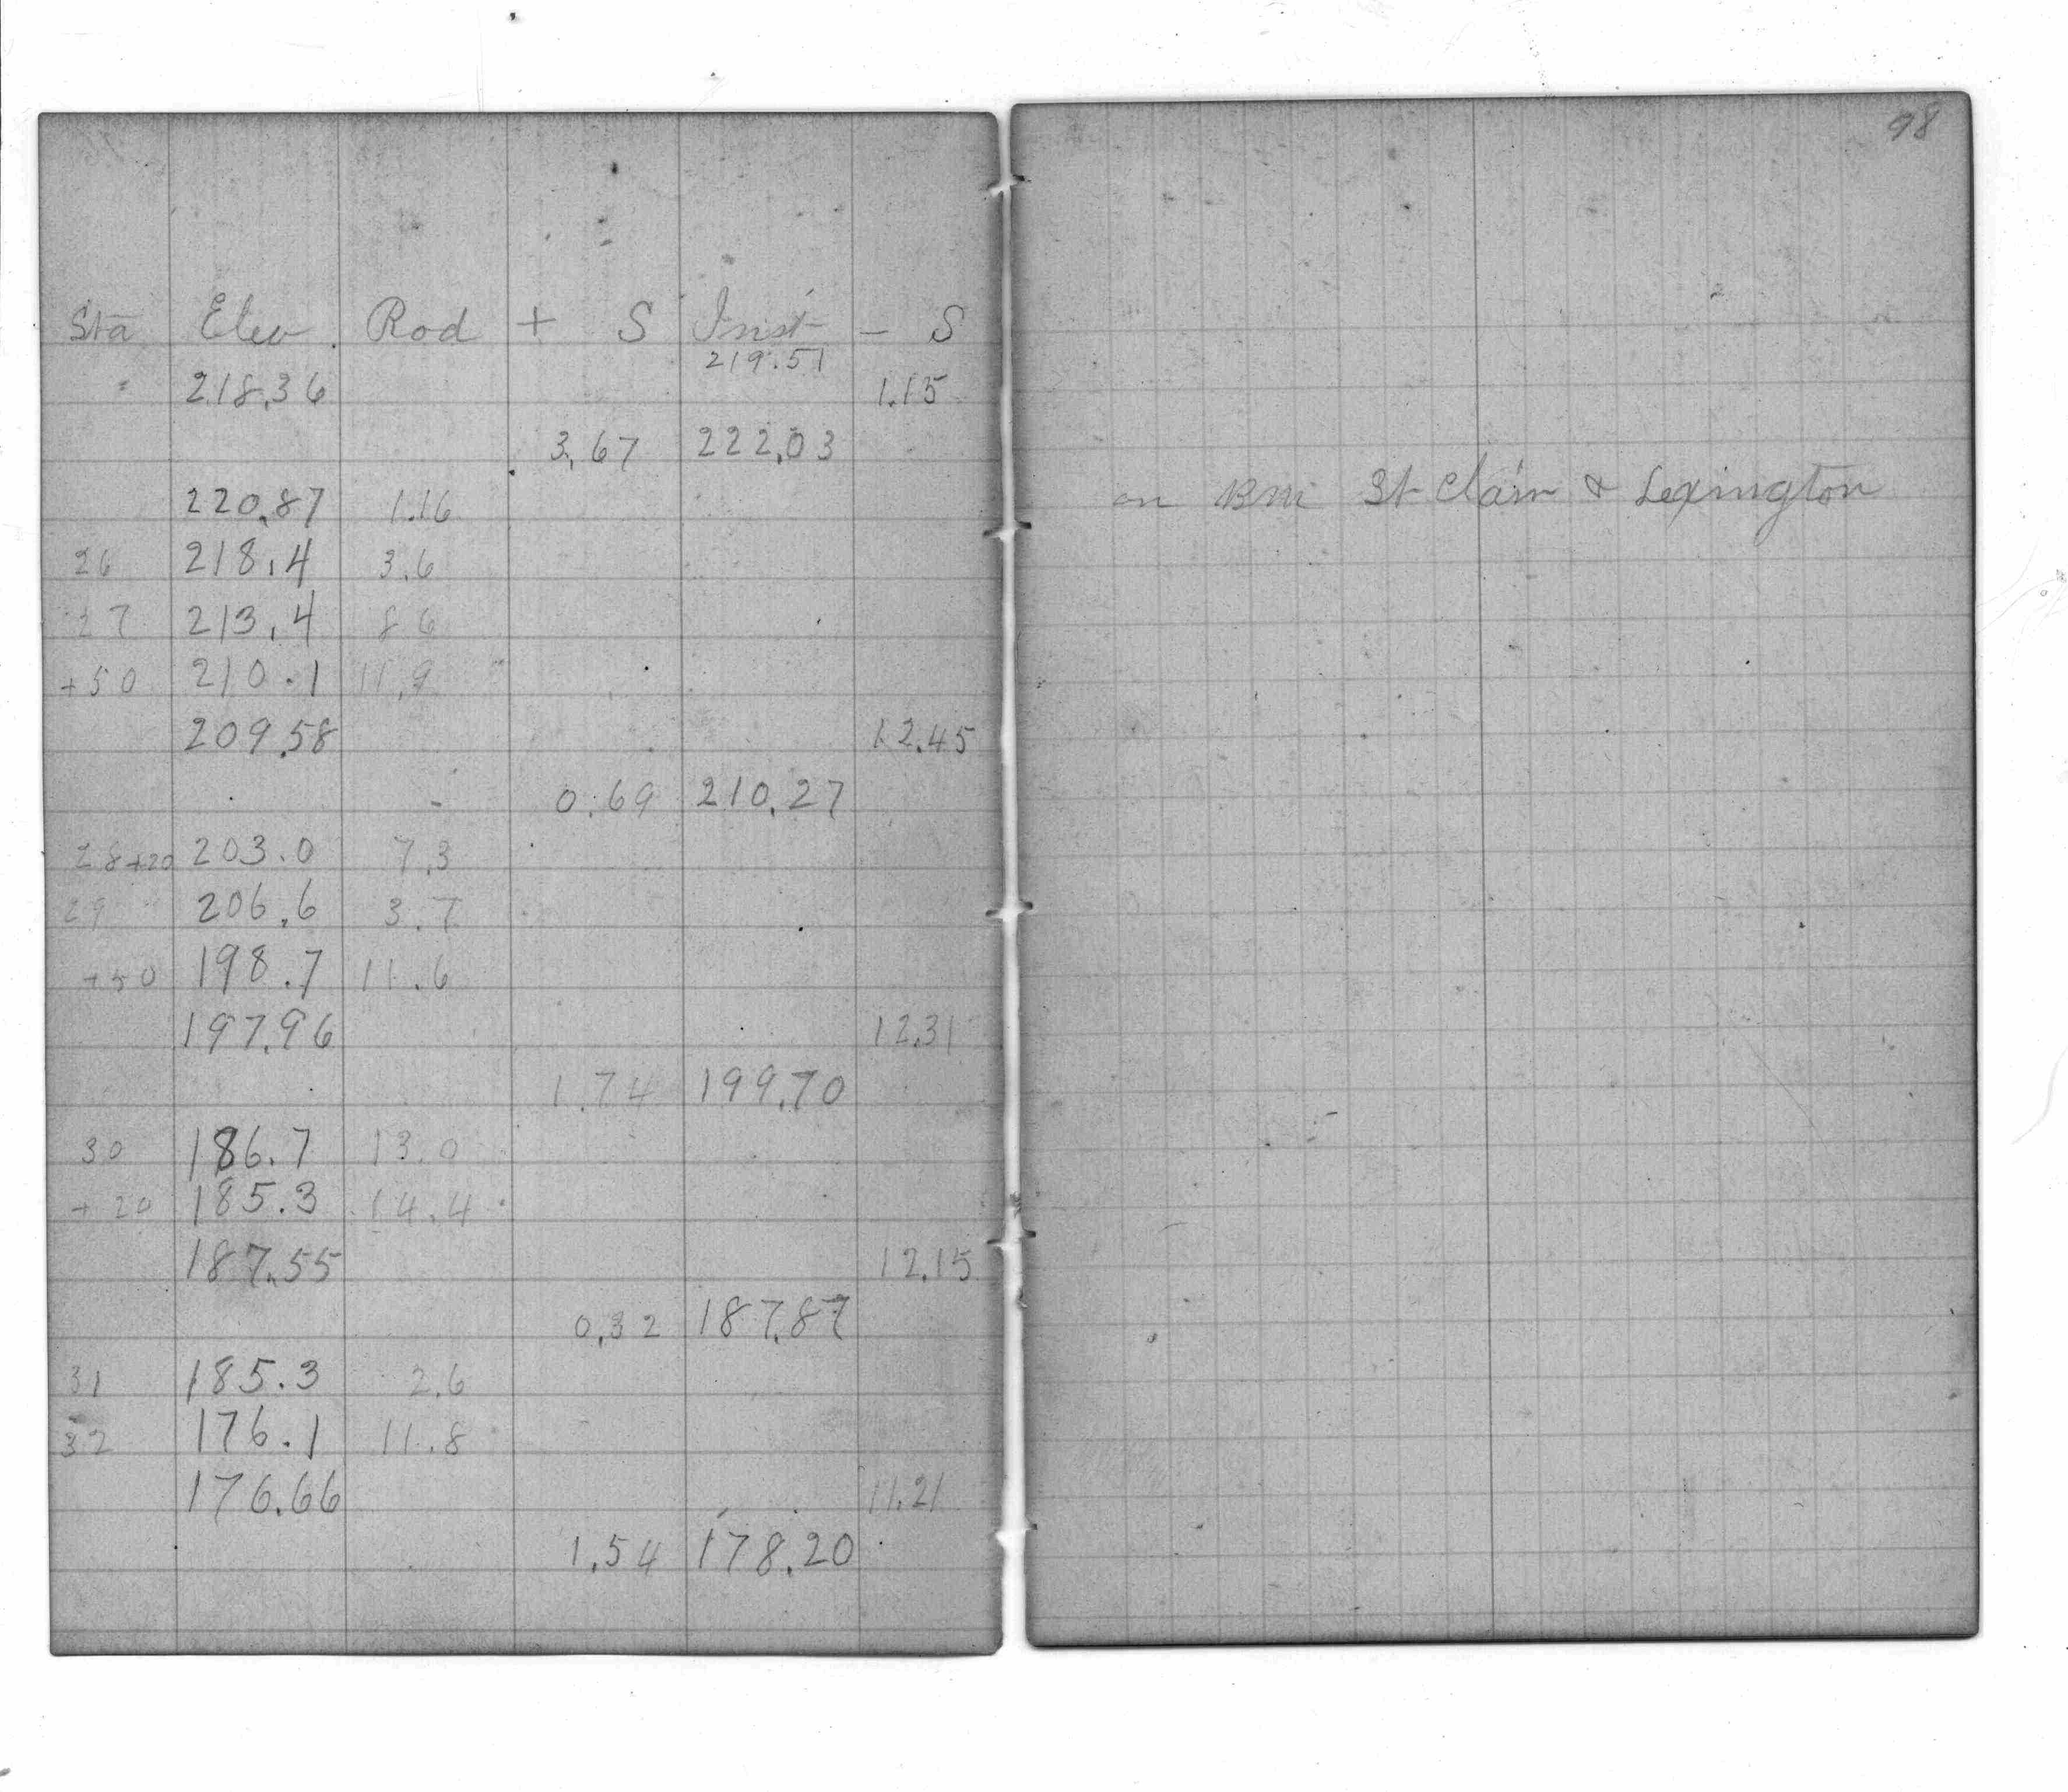 98
Sta Elev. Rod + S Inst - S
219.51
" 218.36 1.15
3.67 222.03
220.87 1.16 on BM St Clair & Lexington
26 218.4 3.6
27 213.4 8 6
+50 210.1 11.9
209.58 12.45
0.69 210.27
28+20 203.0 7.3
29 206.6 3.7
+50 198.7 11.6
197.96 12.31
1.74 199.70
30 186.7 13.0
+20 185.3 14.4
187.55 12.15
0.32 187.87
31 185.3 2.6
32 176.1 11.8
176.66 11.21
1.54 178.20